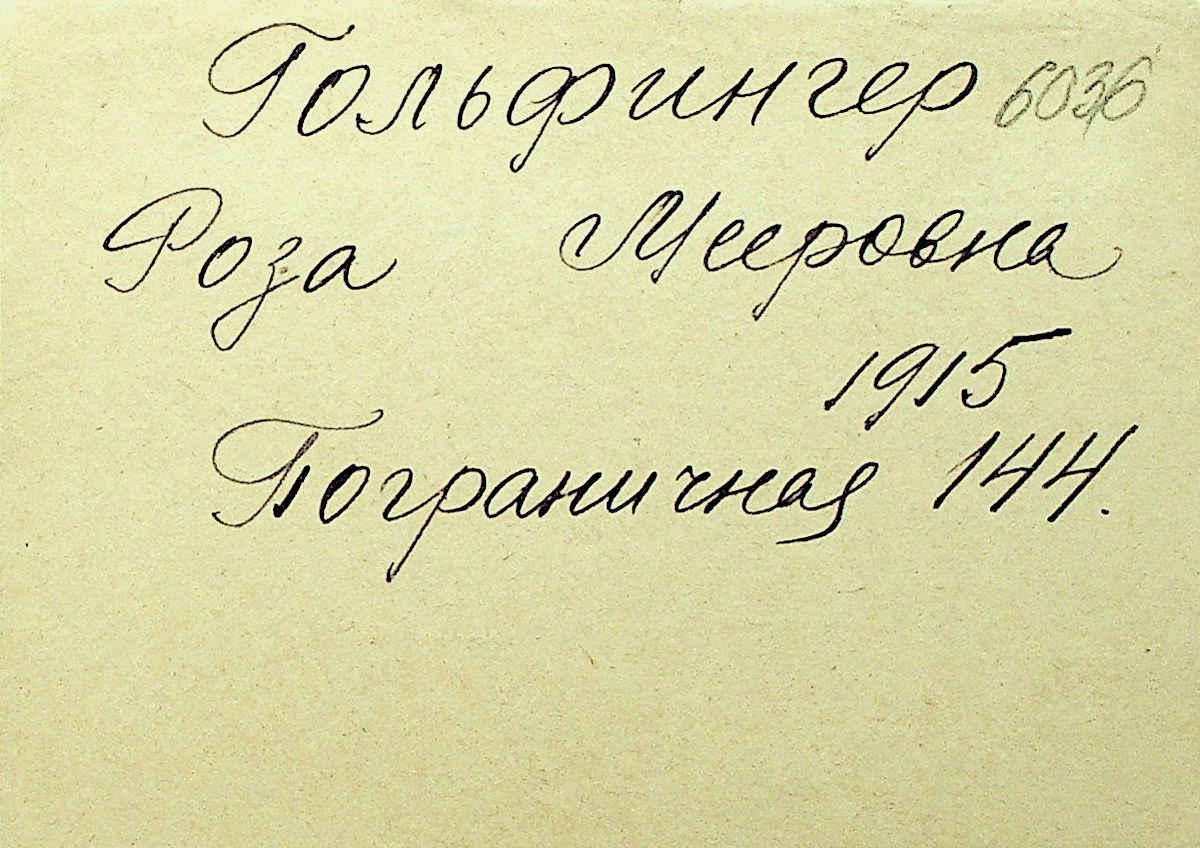 Гольфингер 6036
Роза Мееровна
1915
Пограничная 144.